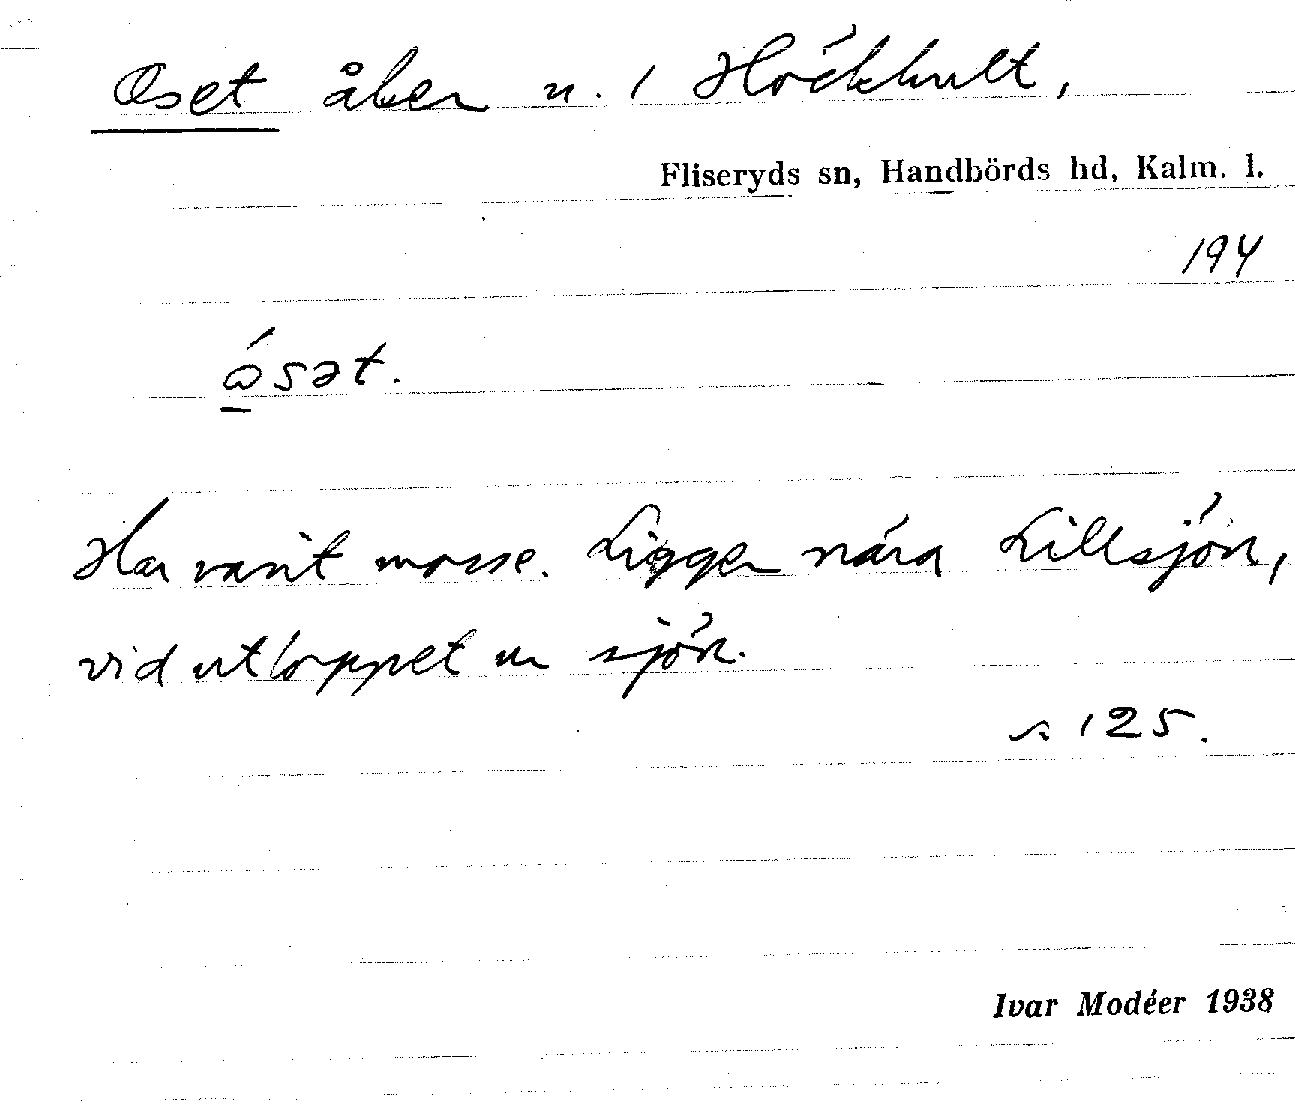 Oset åker n. i Höckhult,
Fliseryds sn, Handbörds hd, Kalm. l.
194
ósət.
Har varit mosse. Ligger nära Lillsjön,
vid utloppet ur sjön.
s 125.
Ivar Modéer 1938